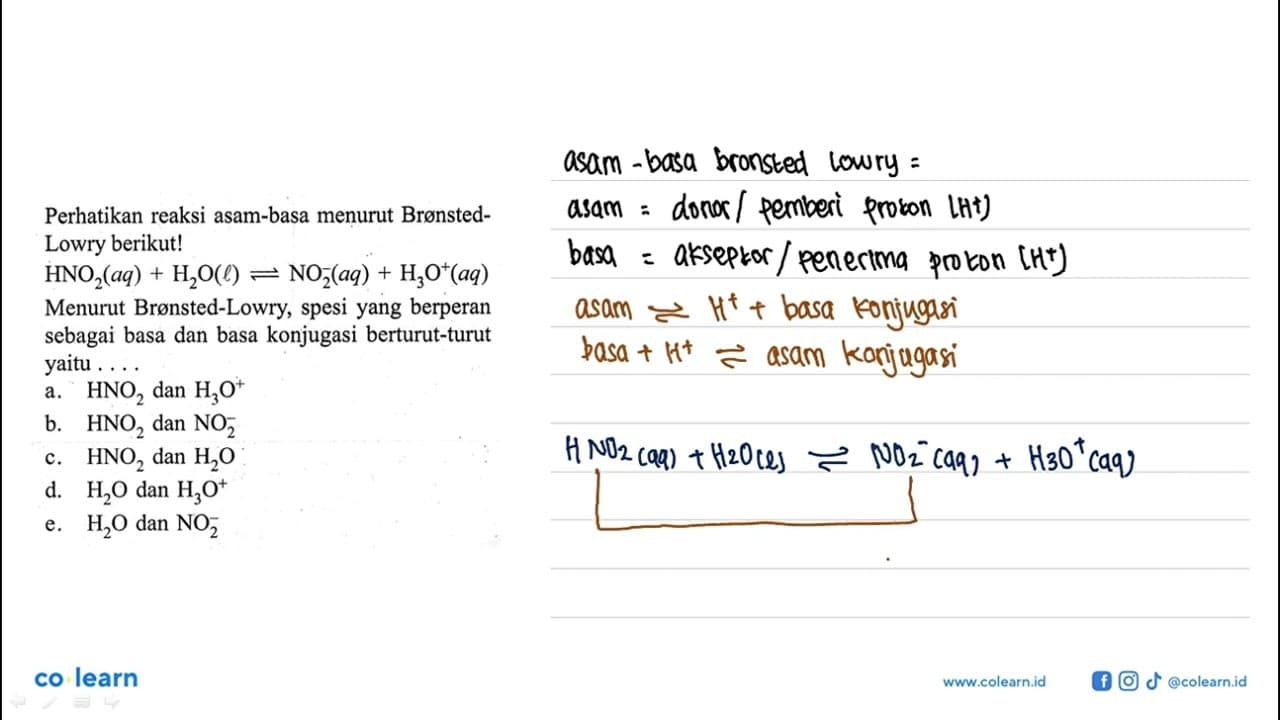 Perhatikan reaksi asam-basa menurut Brønsted-
Lowry berikut!
HNO₂(aq) + H₂O(ℓ) ⇌ NO₂⁻(aq) + H₃O⁺(aq)
Menurut Brønsted-Lowry, spesi yang berperan
sebagai basa dan basa konjugasi berturut-turut
yaitu . . . .
a. HNO₂ dan H₃O⁺
b. HNO₂ dan NO₂⁻
c. HNO₂ dan H₂O
d. H₂O dan H₃O⁺
e. H₂O dan NO₂⁻
asam - basa bronsted lowry =
asam = donor / pemberi proton [H+]
basa = akseptor / penerima proton [H+]
asam ⇌ H⁺ + basa konjugasi
basa + H⁺ ⇌ asam konjugasi
HNO₂ (aq) + H₂O (l) ⇌ NO₂⁻ (aq) + H₃O⁺ (aq)
co learn
www.colearn.id
@colearn.id